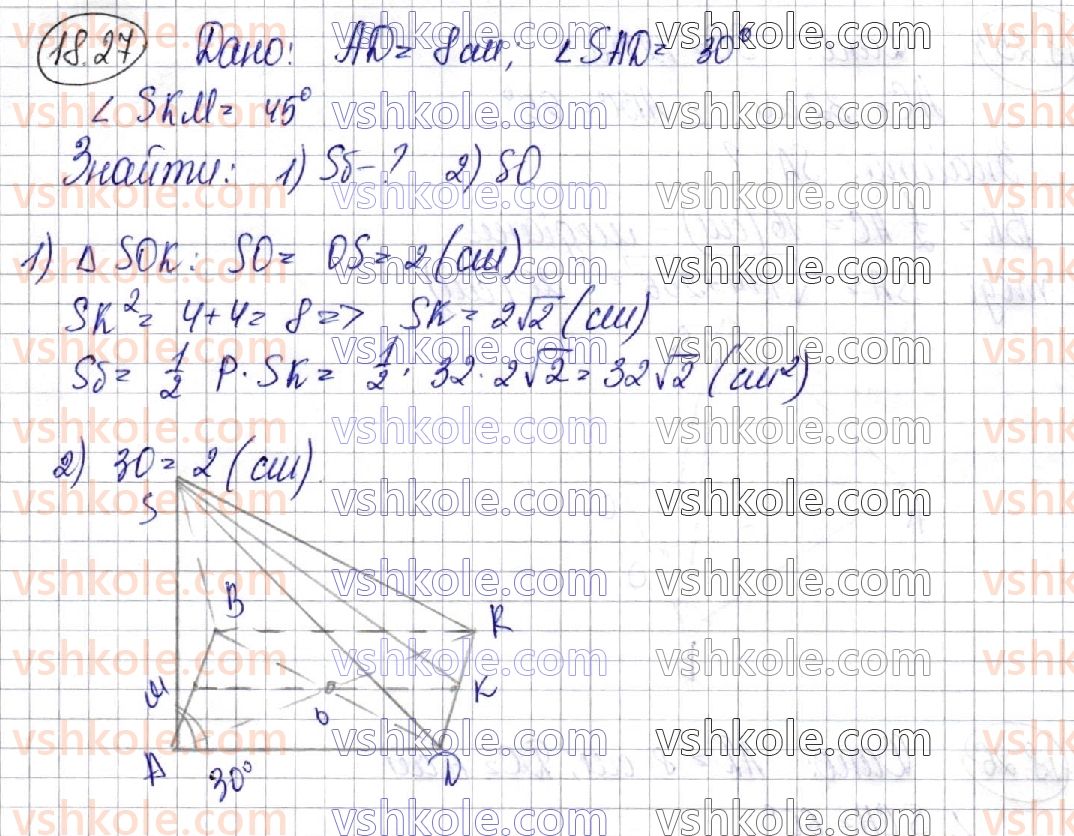 18.27 Дано: AD = 8 см; ∠SAD = 30°
∠SKM = 45°
Знайти: 1) Sб - ? 2) SO
1) Δ SOK: SO = OS = 2 (см)
SK² = 4 + 4 = 8 => SK = 2√2 (см)
Sб = 1/2 P · SK = 1/2 · 32 · 2√2 = 32√2 (см²)
2) 30 = 2 (см)
S
B
R
M
K
O
A
30°
D
vshkole.com